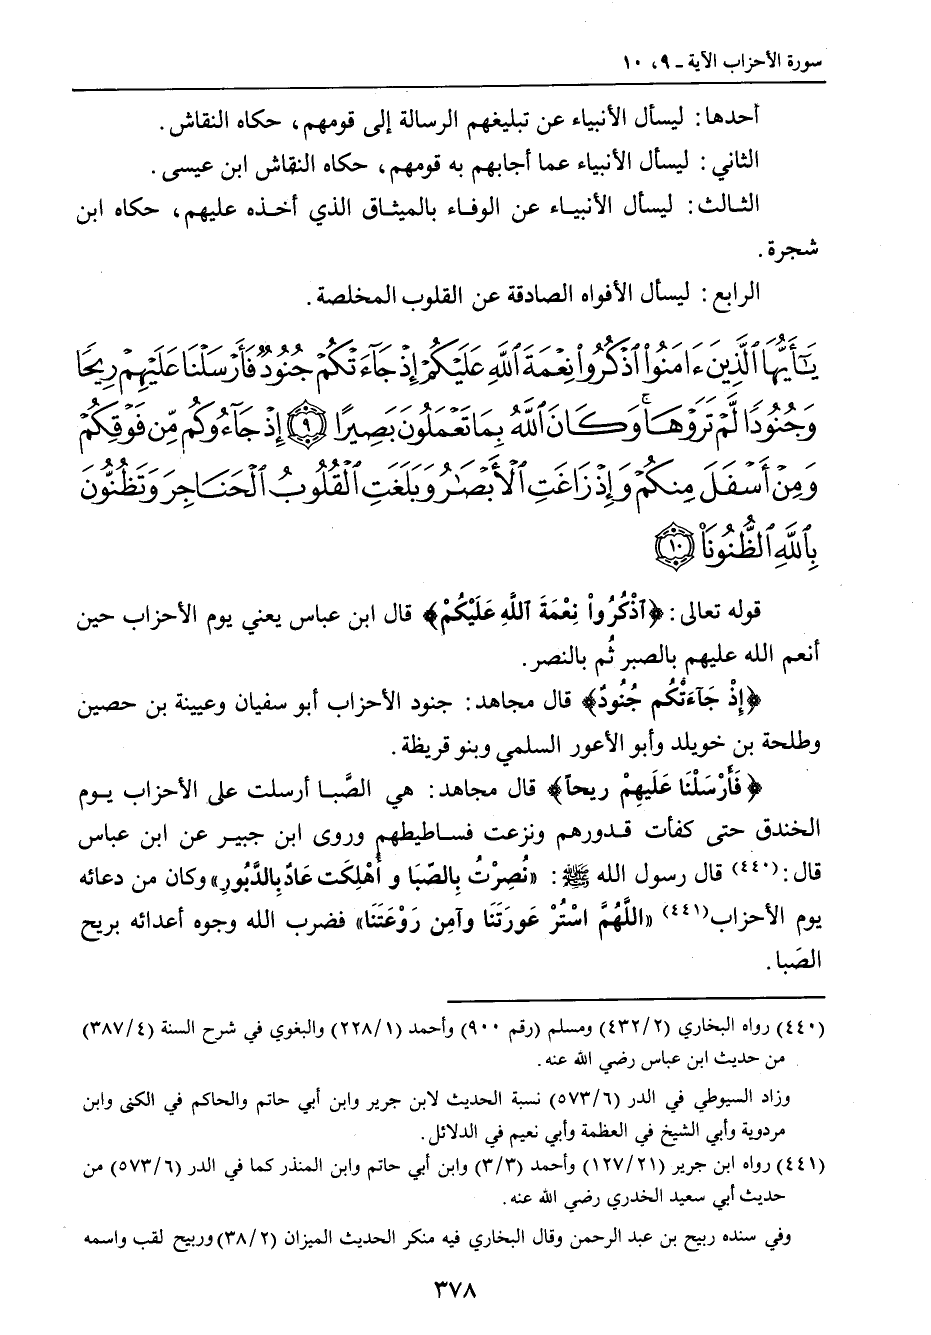 سورة الأحزاب الآية ـ ٩، ١٠
أحدها: ليسأل الأنبياء عن تبليغهم الرسالة إلى قومهم، حكاه النقاش.
الثاني: ليسأل الأنبياء عما أجابهم به قومهم، حكاه النقاش ابن عيسى.
الثالث: ليسأل الأنبياء عن الوفاء بالميثاق الذي أخذه عليهم، حكاه ابن
شجرة.
الرابع: ليسأل الأفواه الصادقة عن القلوب المخلصة.
يَٰٓأَيُّهَا ٱلَّذِينَ ءَامَنُوا۟ ٱذْكُرُوا۟ نِعْمَةَ ٱللَّهِ عَلَيْكُمْ إِذْ جَآءَتْكُمْ جُنُودٌ فَأَرْسَلْنَا عَلَيْهِمْ رِيحًا
وَجُنُودًا لَّمْ تَرَوْهَا ۚ وَكَانَ ٱللَّهُ بِمَا تَعْمَلُونَ بَصِيرًا ٩ إِذْ جَآءُوكُم مِّن فَوْقِكُمْ
وَمِنْ أَسْفَلَ مِنكُمْ وَإِذْ زَاغَتِ ٱلْأَبْصَٰرُ وَبَلَغَتِ ٱلْقُلُوبُ ٱلْحَنَاجِرَ وَتَظُنُّونَ
بِٱللَّهِ ٱلظُّنُونَا۠ ١٠
قوله تعالى: ﴿ٱذْكُرُوا۟ نِعْمَةَ ٱللَّهِ عَلَيْكُمْ﴾ قال ابن عباس يعني يوم الأحزاب حين
أنعم الله عليهم بالصبر ثُم بالنصر.
﴿إِذْ جَآءَتْكُم جُنُودٌ﴾ قال مجاهد: جنود الأحزاب أبو سفيان وعيينة بن حصين
وطلحة بن خويلد وأبو الأعور السلمي وبنو قريظة.
﴿فَأَرْسَلْنَا عَلَيهِمْ ريحاً﴾ قال مجاهد: هي الصَّبا أرسلت على الأحزاب يوم
الخندق حتى كفأت قدورهم ونزعت فساطيطهم وروى ابن جبير عن ابن عباس
قال:(٤٤٠) قال رسول الله ﷺ: «نُصِرْتُ بِالصّبَا و أُهْلِكَت عَادٌ بِالدَّبُورِ» وكان من دعائه
يوم الأحزاب(٤٤١) «اللَّهُمَّ اسْتُرْ عَورَتَنَا وآمِن رَوْعَتَنَا» فضرب الله وجوه أعدائه بريح
الصَبا.
(٤٤٠) رواه البخاري (٤٣٢/٢) ومسلم (رقم ٩٠٠) وأحمد (٢٢٨/١) والبغوي في شرح السنة (٣٨٧/٤)
من حديث ابن عباس رضي الله عنه.
وزاد السيوطي في الدر (٥٧٣/٦) نسبة الحديث لابن جرير وابن أبي حاتم والحاكم في الكنى وابن
مردوية وأبي الشيخ في العظمة وأبي نعيم في الدلائل.
(٤٤١) رواه ابن جرير (١٢٧/٢١) وأحمد (٣/٣) وابن أبي حاتم وابن المنذر كما في الدر (٥٧٣/٦) من
حديث أبي سعيد الخدري رضي الله عنه.
وفي سنده ربيح بن عبد الرحمن وقال البخاري فيه منكر الحديث الميزان (٣٨/٢) وربيح لقب واسمه
٣٧٨